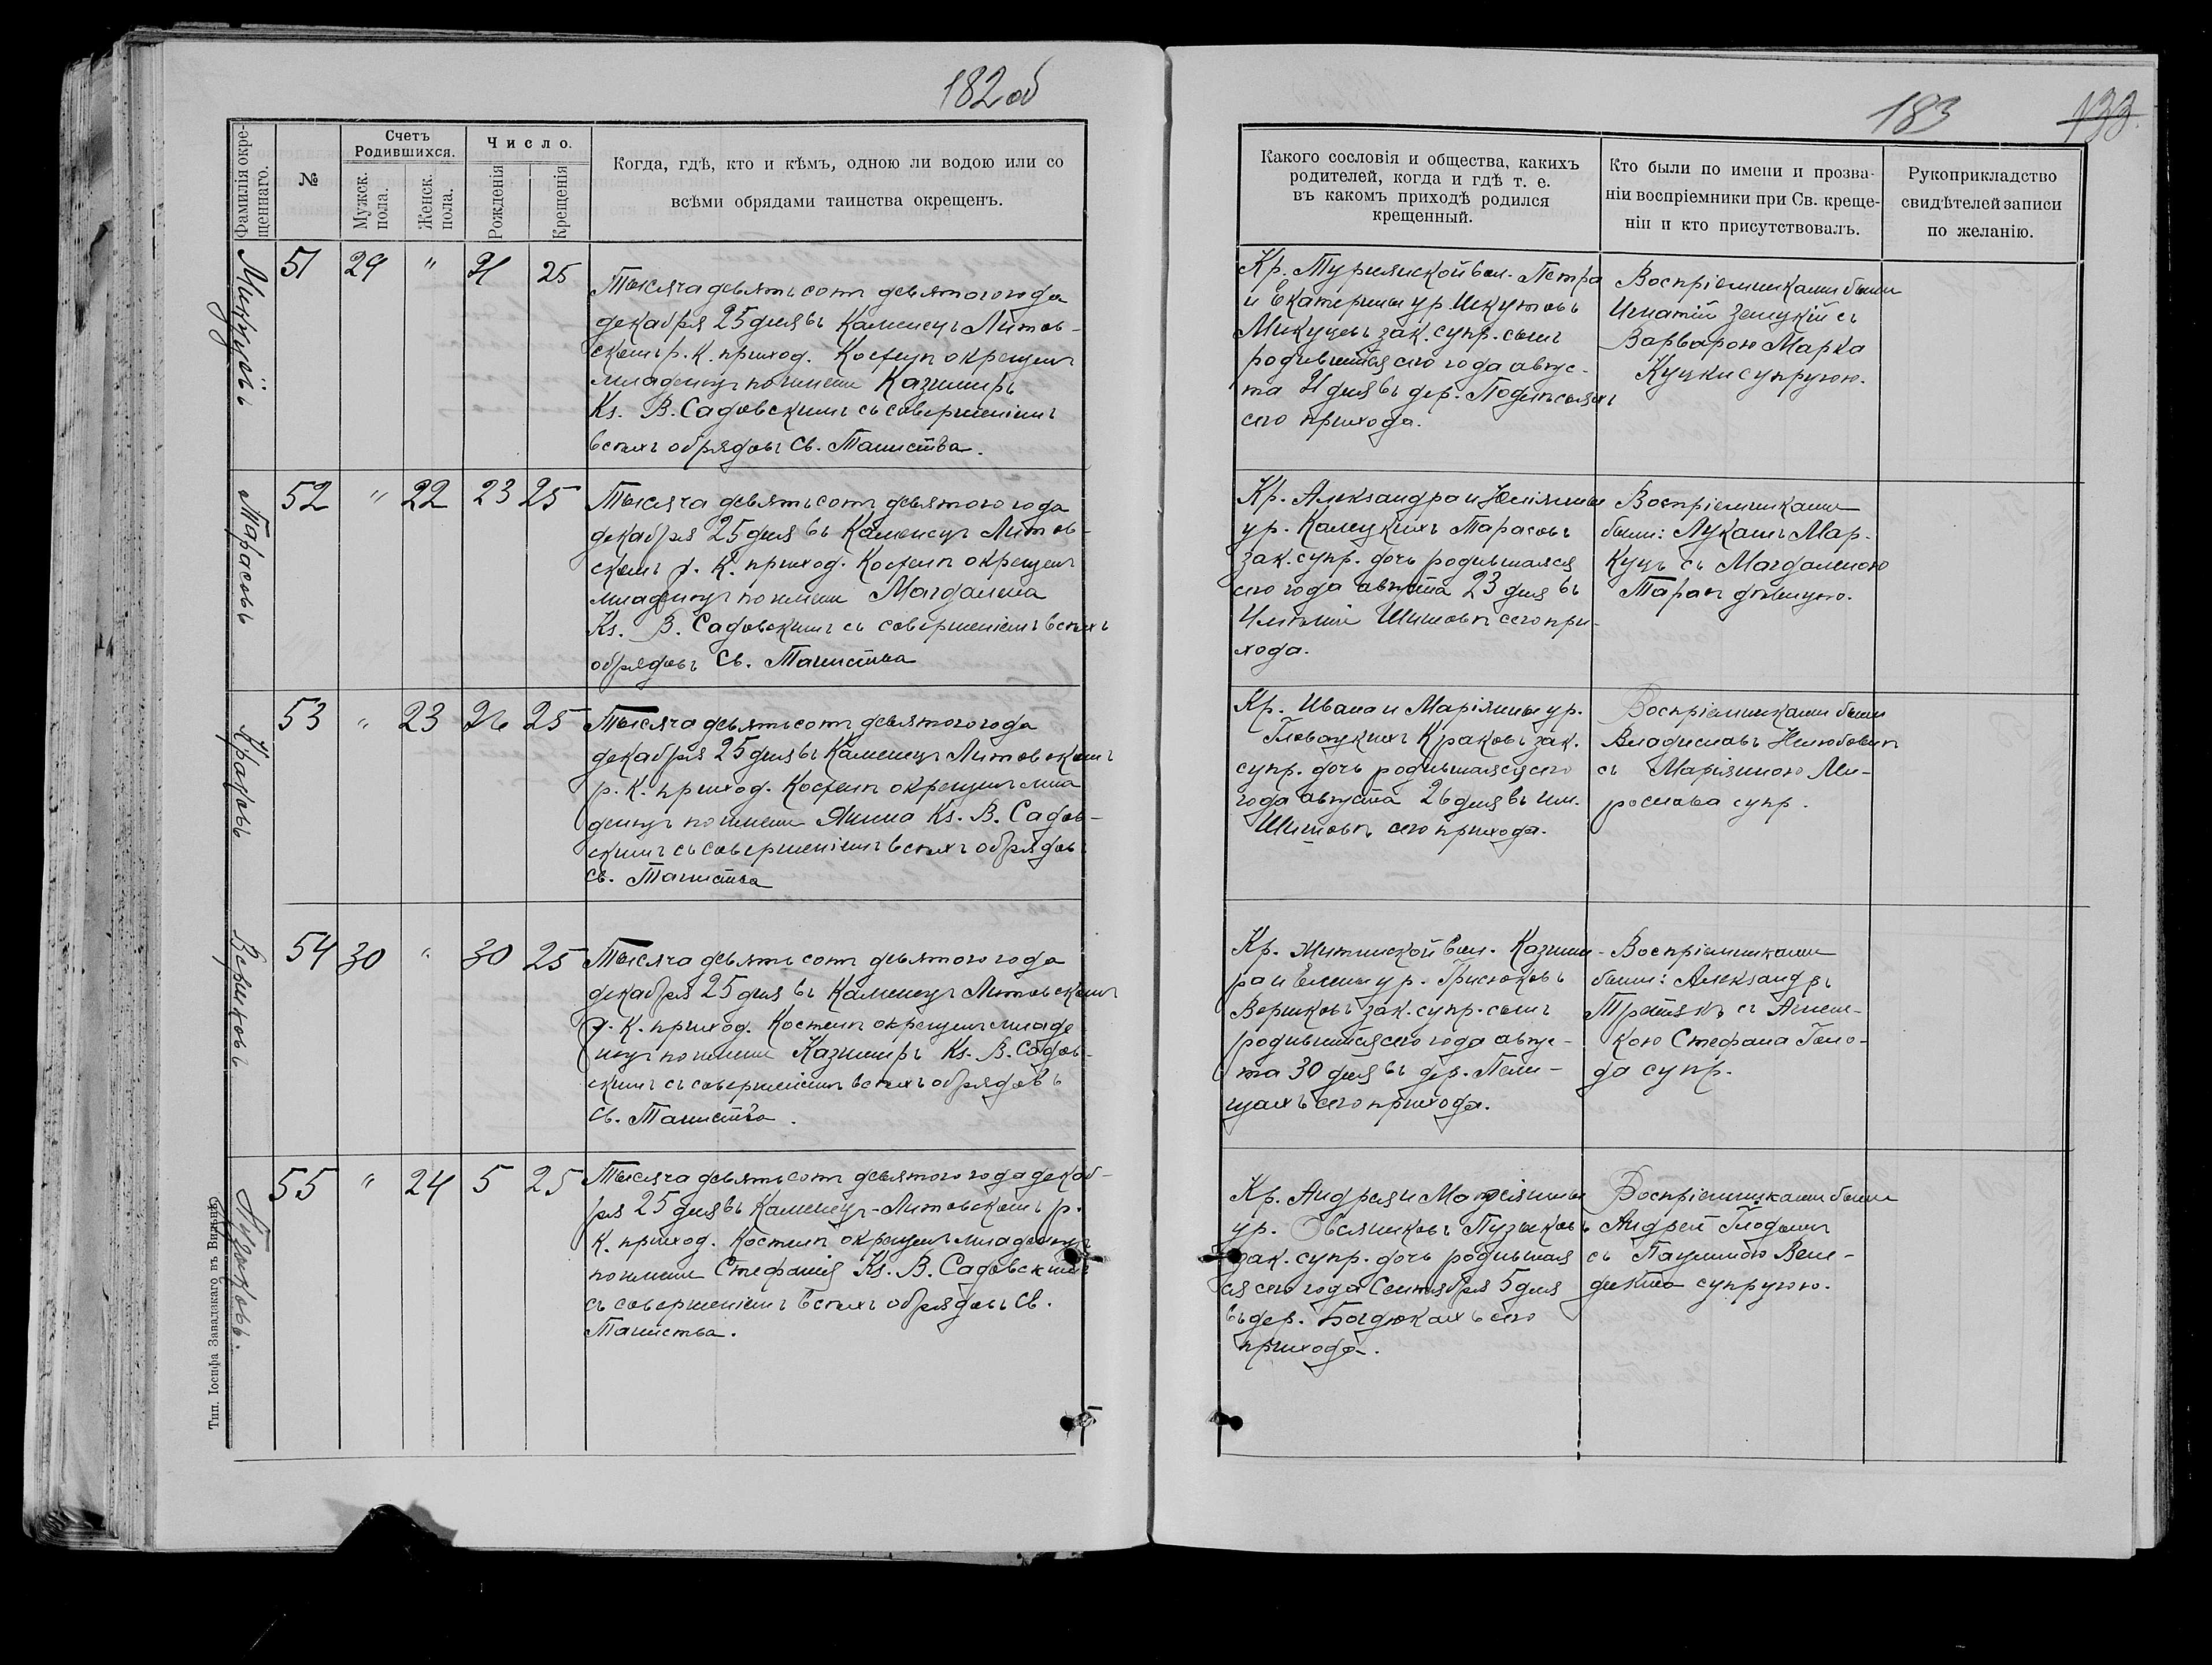 182 об
Фамилія окре-
щеннаго.
№
Счетъ
Родившихся.
Мужск.
пола.
Женск.
пола.
Число.
Рожденія
Крещенія
Когда, гдѣ, кто и кѣмъ, одною ли водою или со
всѣми обрядами таинства окрещенъ.
51 29 " 21 25
Тысяча девятьсотъ девятого года
декабря 25 дня въ Каменецъ Литов-
скомъ р. К. приход. Костелѣ окрещенъ
младенецъ по имени Казимиръ
Кs. В. Садовскимъ съ совершеніемъ
всѣхъ обрядовъ Св. Таинства.
Тарасовъ
52 " 22 23 25
Тысяча девятьсотъ девятого года
декабря 25 дня въ Каменецъ Литов-
скомъ р. К. приход. Костелѣ окрещенъ
младенецъ по имени Магдалена
Кs. В. Садовскимъ съ совершеніемъ всѣхъ
обрядовъ Св. Таинства
Краковъ
53 " 23 26 25
Тысяча девятьсотъ девятого года
декабря 25 дня въ Каменецъ Литовскомъ
р. К. приход. Костелѣ окрещенъ мла
денецъ по имени Янина Кs. В. Садов-
скимъ съ совершеніемъ всѣхъ обрядовъ
Св. Таинства
54 30 " 30 25
Тысяча девятьсотъ девятого года
декабря 25 дня въ Каменецъ Литовскомъ
р. К. приход. Костелѣ окрещенъ младе
нецъ по имени Казимиръ Кs. В. Садов-
скимъ съ совершеніемъ всѣхъ обрядовъ
Св. Таинства.
Пузыковъ.
55 " 24 5 25
Тысяча девятьсотъ девятого года декаб-
ря 25 дня въ Каменецъ-Литовскомъ р.
К. приход. Костелѣ окрещенъ младенецъ
по имени Стефанія Кs. В. Садовскимъ
съ совершеніемъ всѣхъ обрядовъ Св.
Таинства.
Тип. Іосифа Завадзкаго въ Вильнѣ
183
133.
Какого сословія и общества, какихъ
родителей, когда и гдѣ т. е.
въ какомъ приходѣ родился
крещенный.
Кто были по имени и прозва-
ніи воспріемники при Св. креще-
ніи и кто присутствовалъ.
Рукоприкладство
свидѣтелей записи
по желанію.
Кр. вол. Петра
и Екатерины ур.
зак. супр. сынъ
родившійся сего года авгус-
та 21 дня въ дер.
сего прихода.
Воспріемниками были
Игнатій съ
Варварою Марка
Куцки супругою.
Кр. Александра и
ур. Тарасовъ
зак. супр. дочь родившаяся
сего года августа 23 дня въ
Имѣніи Шишовѣ сего при-
хода.
Воспріемниками
были: Лукашъ Мар-
куцъ съ Магдаленою
Таран дѣвицею.
Кр. Ивана и Маріянны ур.
Гловацкихъ Краковъ зак.
супр. дочь родившаяся сего
года августа 26 дня въ им.
Шишовѣ сего прихода.
Воспріемниками были
Владиславъ
съ Маріянною Ми-
рослава супр.
Кр. вол. Казими-
ра и Елены ур. Грисюковъ
зак. супр. сынъ
родившійся сего года авгус-
та 30 дня въ дер. Пели-
щахъ сего прихода.
Воспріемниками
были: Александръ
съ
Стефана Голо-
да супр.
Кр. Андрея и
ур. Овсяниковъ Пузыковъ
зак. супр. дочь родившая
ся сего года Сентября 5 дня
въ дер. Богдюкахъ сего
прихода.
Воспріемниками были
Андрей
съ Паулиною Вене-
дикта супругою.